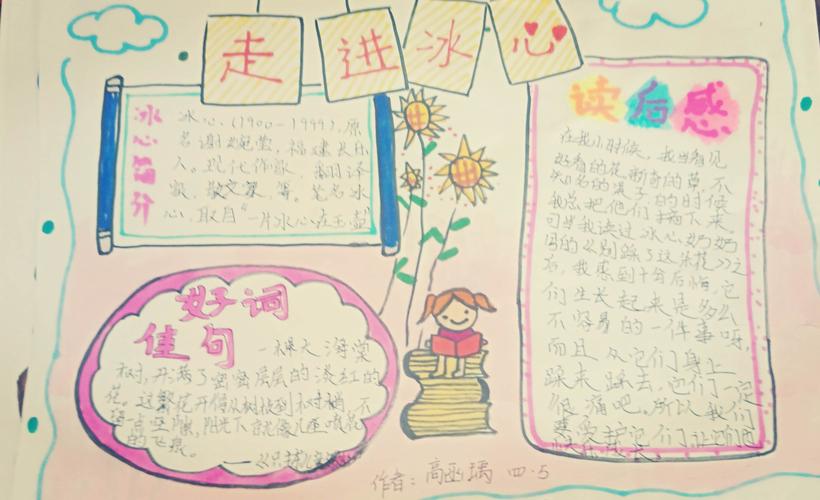 走进冰心
冰心简介
冰心，(1900-1999)，原
名谢婉莹，福建长乐
人。现代作家，翻译
家，散文家，等。笔名冰
心，取自“一片冰心在玉壶”
好词
佳句
一棵大海棠
树，开满了密密层层的淡红的
花。这繁花开得从树枝到树梢，不
留一点空隙，阳光下就像几座喷花
的飞泉。
读后感
在我小时候，我当看见
好看的花，新奇的草，不
知名的果子，的时候
我总把他们摘下来。
可当我读过冰心奶奶
写的《别踩了这朵花》之
后，我感到十分后悔，它
们生长起来是多么
不容易的一件事呀，
而且从它们身上
踩来踩去，它们一定
很痛吧。所以我们
要爱护它们，让它们
快乐成长。
作者：高 瑀 四·5